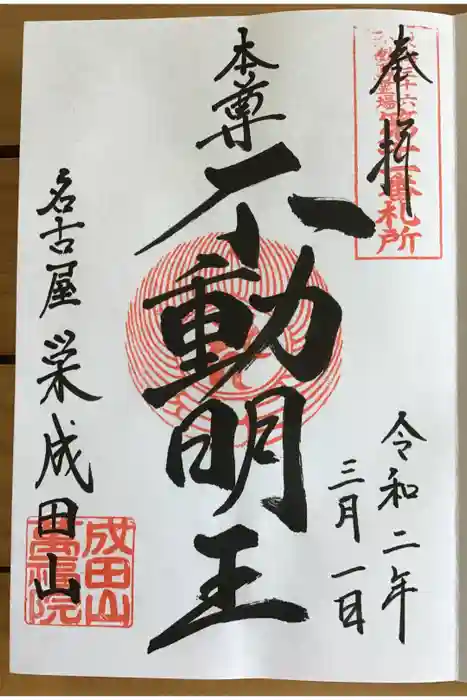 奉拝
第廿一番札所
本尊
不動明王
令和二年
三月一日
名古屋栄成田山
成田山